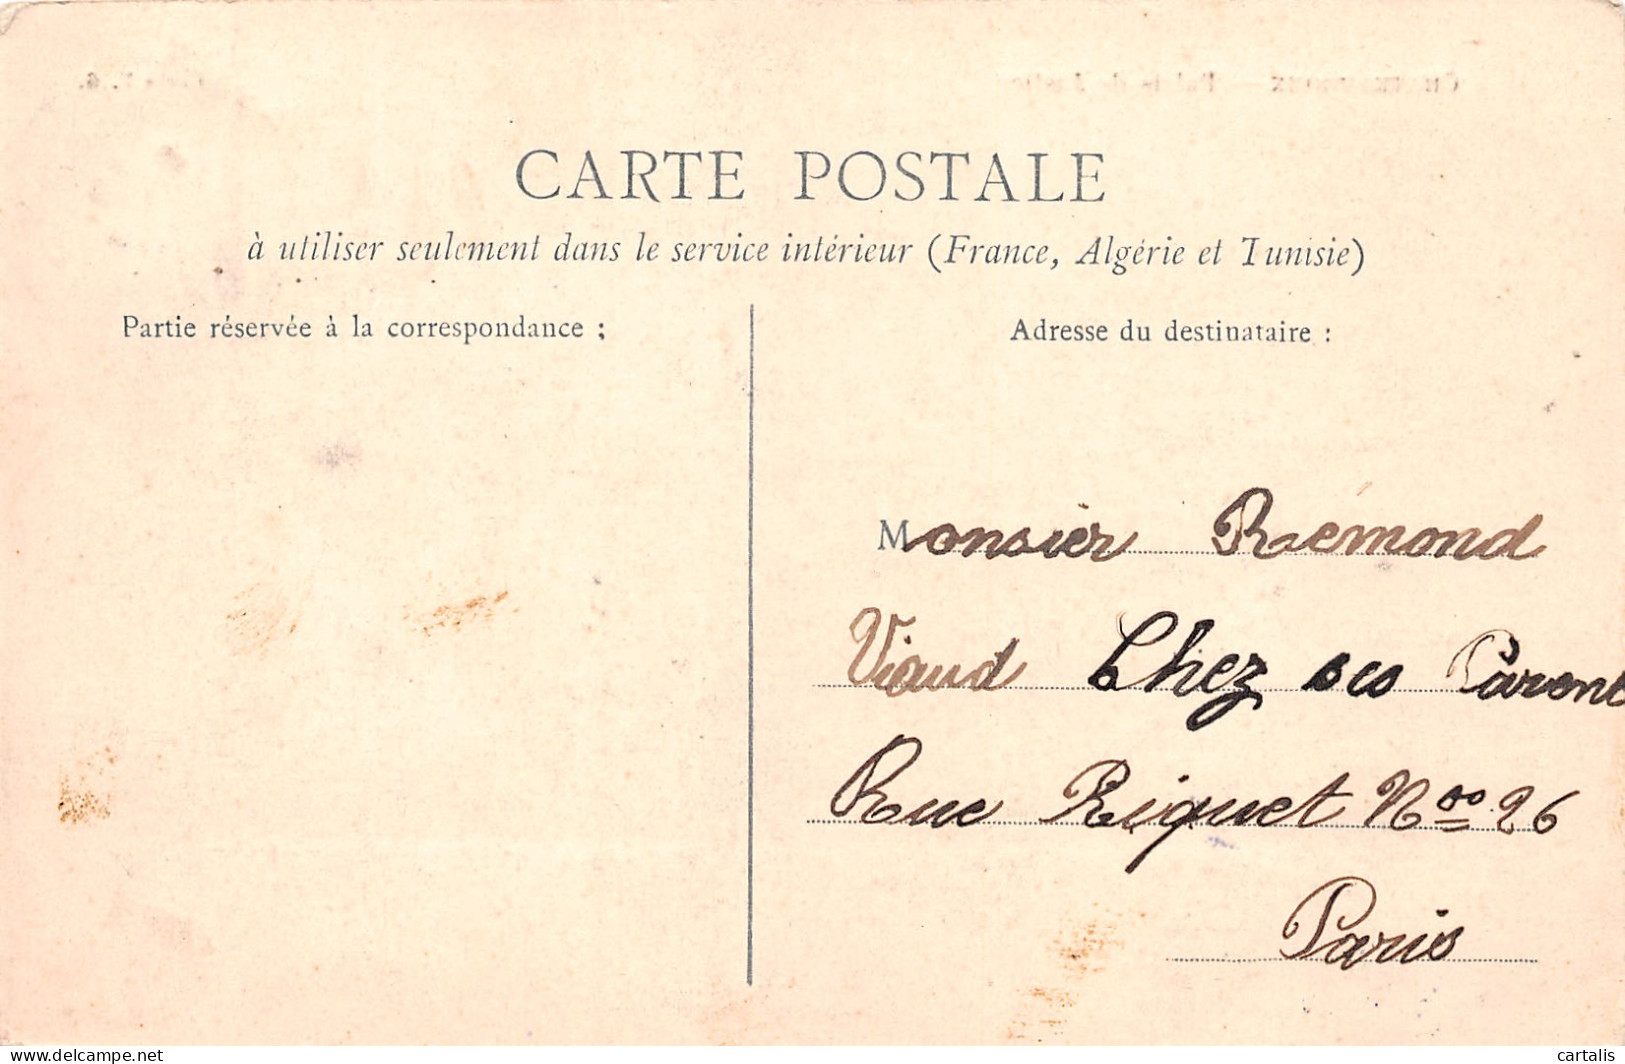 CARTE POSTALE
à utiliser seulement dans le service intérieur (France, Algérie et Tunisie)
Partie réservée à la correspondance ;
Adresse du destinataire :
Monsier Rémond
Viaud Chez ses Parent
Rue Riquet Noo 26
Paris
www.delcampe.net
cartalis